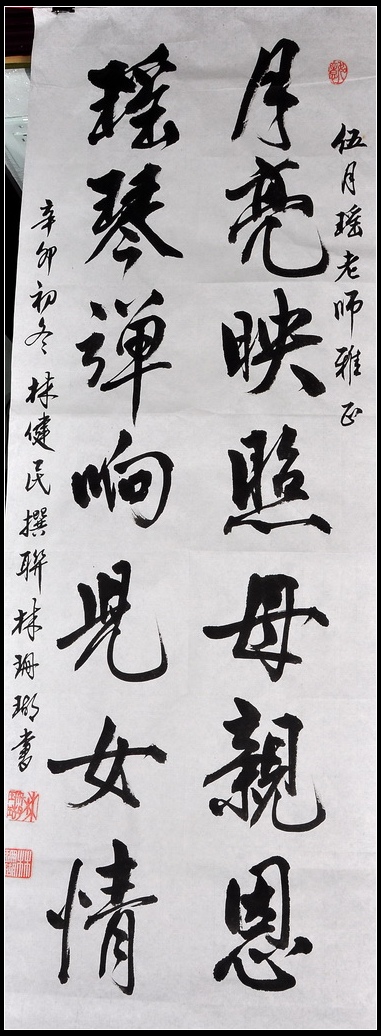 伍月瑶老师雅正
月亮映照母親恩
瑶琴弹响児女情
辛卯初冬 林健民撰联 林珊瑚書